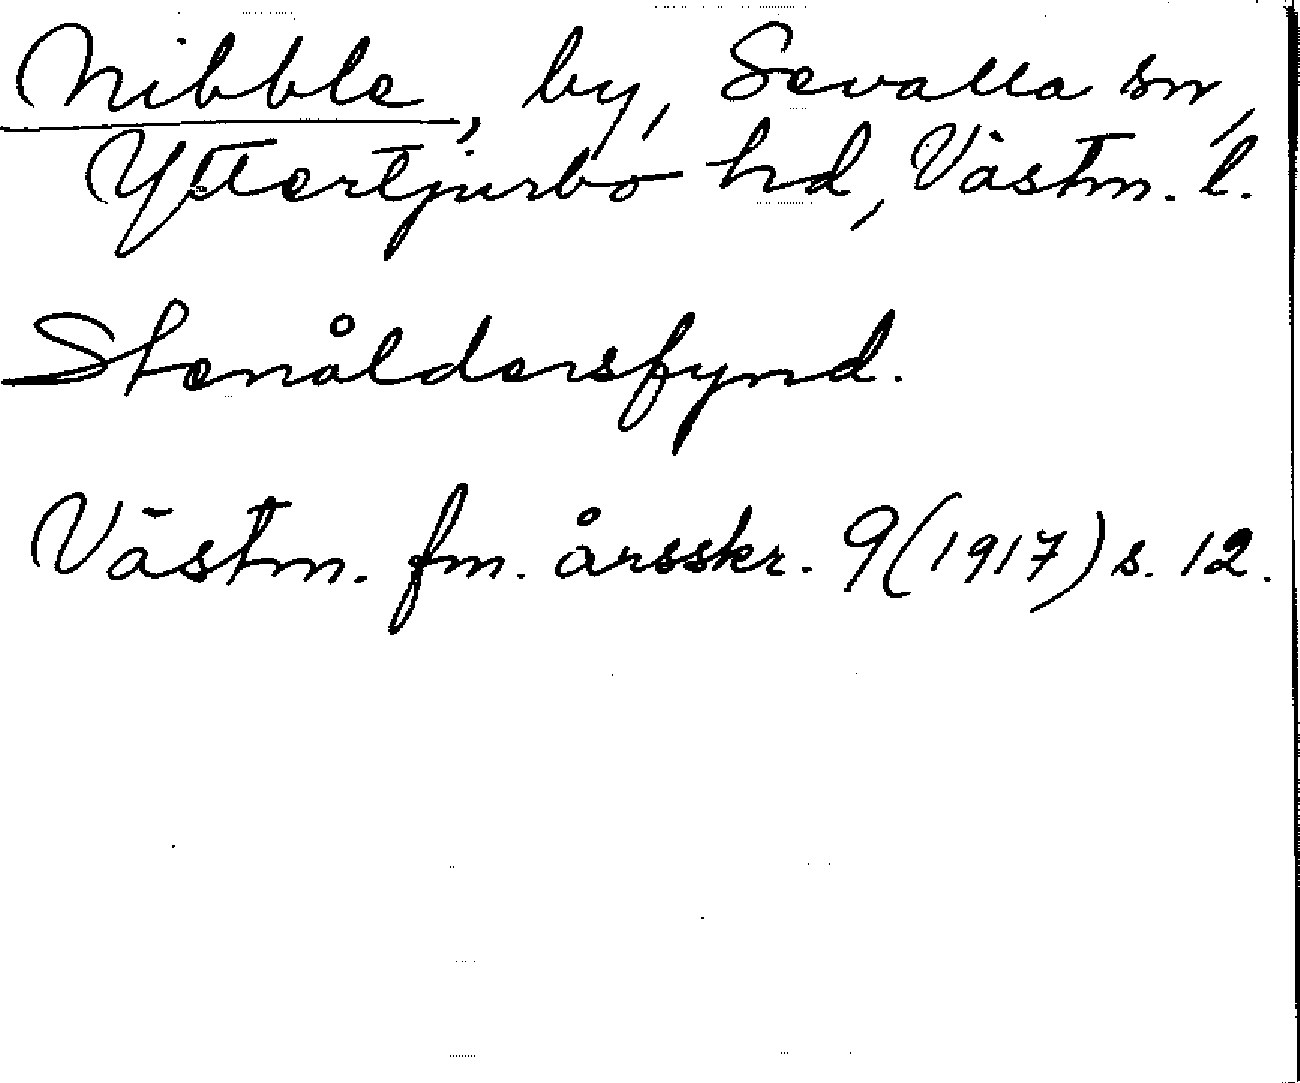 Nibble, by, Sevalla sn,
Yttertjurbo hd, Västm. l.
Stenåldersfynd.
Västm. fm. årsskr. 9 (1917) s. 12.